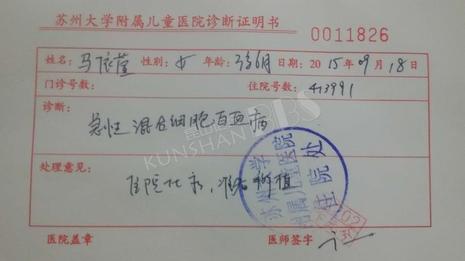 苏州大学附属儿童医院诊断证明书
0011826
姓名:马依萱 性别:女 年龄:3岁6月 日期:2015年09月18日
门诊号数: 住院号数:413991
诊断:
急性混合细胞白血病
KUNSHAN BBS
处理意见:
住院化疗,准备移植
医院盖章 医师签字